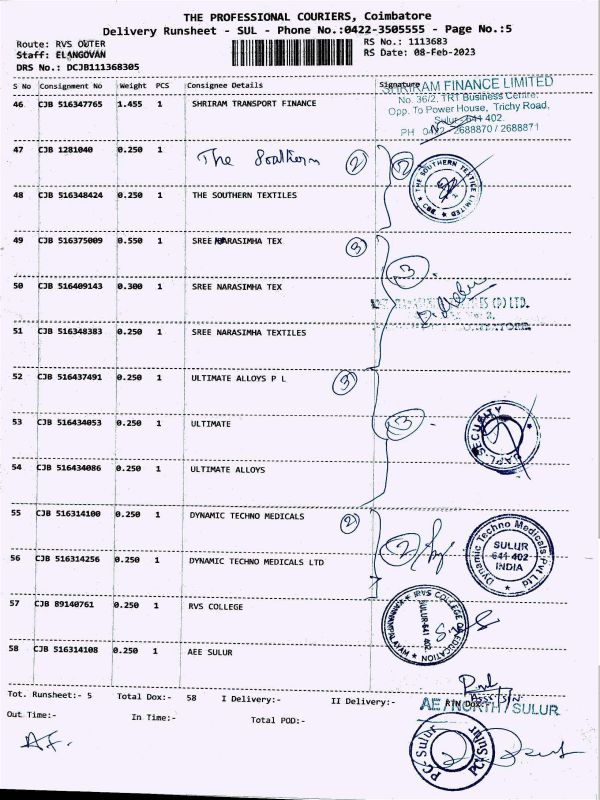 THE PROFESSIONAL COURIERS, Coimbatore
Delivery Runsheet - SUL - Phone No.:0422-3505555 - Page No.:5
Route: RVS OUTER
RS No.: 1113683
Staff: ELANGOVAN
RS Date: 08-Feb-2023
DRS No.: DCJB111368305
S No Consignment No Weight PCS Consignee Details Signature
SHRIRAM FINANCE LIMITED
No. 36/2, TRT Business Centre,
Opp. To Power House, Trichy Road,
Sulur 641 402.
PH 0422 2688870 / 2688871
46 CJB 516347765 1.455 1 SHRIRAM TRANSPORT FINANCE
47 CJB 1281040 0.250 1 The Southern 2 2
THE SOUTHERN TEXTILE LIMITED
48 CJB 516348424 0.250 1 THE SOUTHERN TEXTILES
49 CJB 516375009 0.550 1 SREE NARASIMHA TEX 3 3
50 CJB 516409143 0.300 1 SREE NARASIMHA TEX
(P) LTD.
51 CJB 516348383 0.250 1 SREE NARASIMHA TEXTILES
52 CJB 516437491 0.250 1 ULTIMATE ALLOYS P L 3
53 CJB 516434053 0.250 1 ULTIMATE 3
SECURITY
54 CJB 516434086 0.250 1 ULTIMATE ALLOYS
55 CJB 516314100 0.250 1 DYNAMIC TECHNO MEDICALS 2 2
Dynamic Techno Medicals Pvt Ltd
SULUR
641 402
INDIA
56 CJB 516314256 0.250 1 DYNAMIC TECHNO MEDICALS LTD
57 CJB 89140761 0.250 1 RVS COLLEGE
RVS COLLEGE OF EDUCATION
SULUR-641 402
58 CJB 516314108 0.250 1 AEE SULUR
Tot. Runsheet:- 5 Total Dox:- 58 I Delivery:- II Delivery:- RTN Dox:-
AE / NORTH / SULUR
Out Time:- In Time:- Total POD:-
PC- Sulur